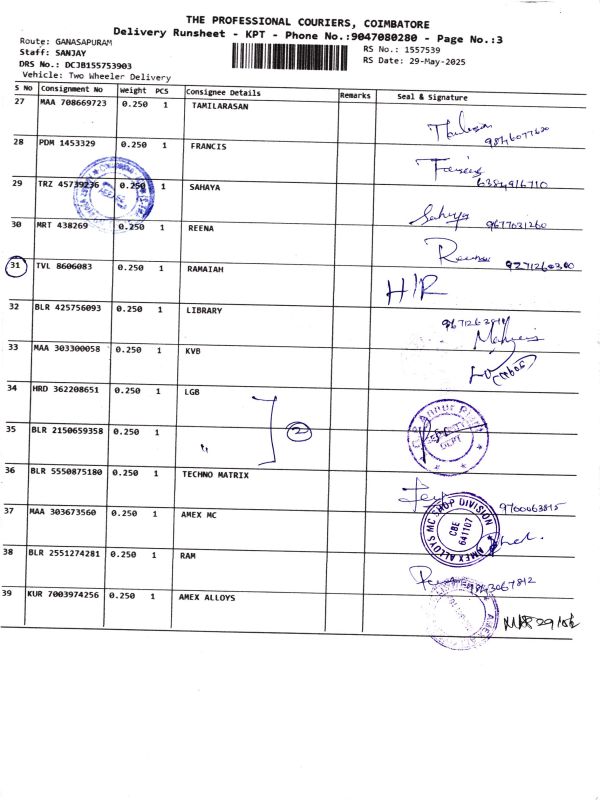 THE PROFESSIONAL COURIERS, COIMBATORE
Delivery Runsheet - KPT - Phone No.:9047080280 - Page No.:3
Route: GANASAPURAM
RS No.: 1557539
Staff: SANJAY
RS Date: 29-May-2025
DRS No.: DCJB155753903
Vehicle: Two Wheeler Delivery
S No Consignment No Weight PCS Consignee Details Remarks Seal & Signature
27 MAA 708669723 0.250 1 TAMILARASAN
9846077620
28 PDM 1453329 0.250 1 FRANCIS
6384916710
29 TRZ 45739236 0.250 1 SAHAYA
Sahaya 9677031260
30 MRT 438269 0.250 1 REENA
31 TVL 8606083 0.250 1 RAMAIAH
H/R
32 BLR 425756093 0.250 1 LIBRARY
33 MAA 303300058 0.250 1 KVB
34 HRD 362208651 0.250 1 LGB
2
35 BLR 2150659358 0.250 1 "
36 BLR 5550875180 0.250 1 TECHNO MATRIX
9760063815
37 MAA 303673560 0.250 1 AMEX MC
AMEX ALLOYS MC SHOP DIVISION
CBE
641107
38 BLR 2551274281 0.250 1 RAM
39 KUR 7003974256 0.250 1 AMEX ALLOYS